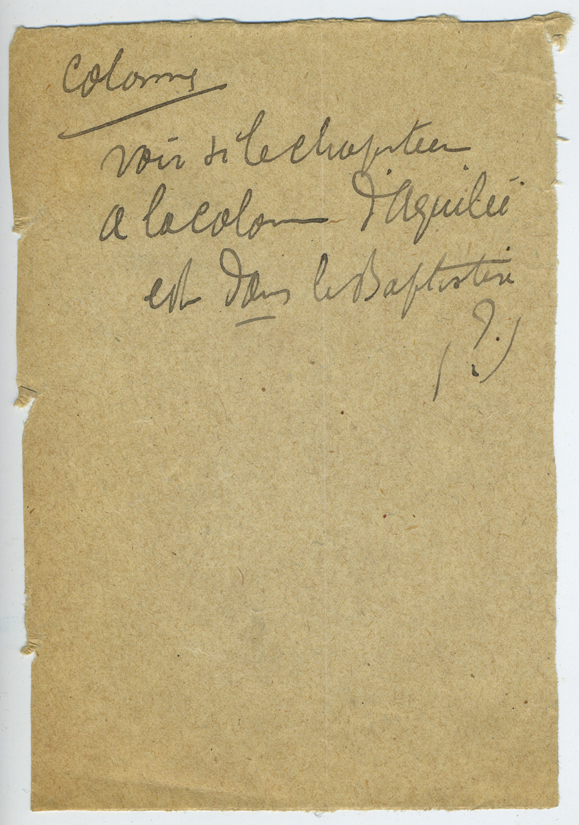 Colonne
voir si le chapiteau
a la colonne d'Aquilée
est dans le Baptistère
(?)